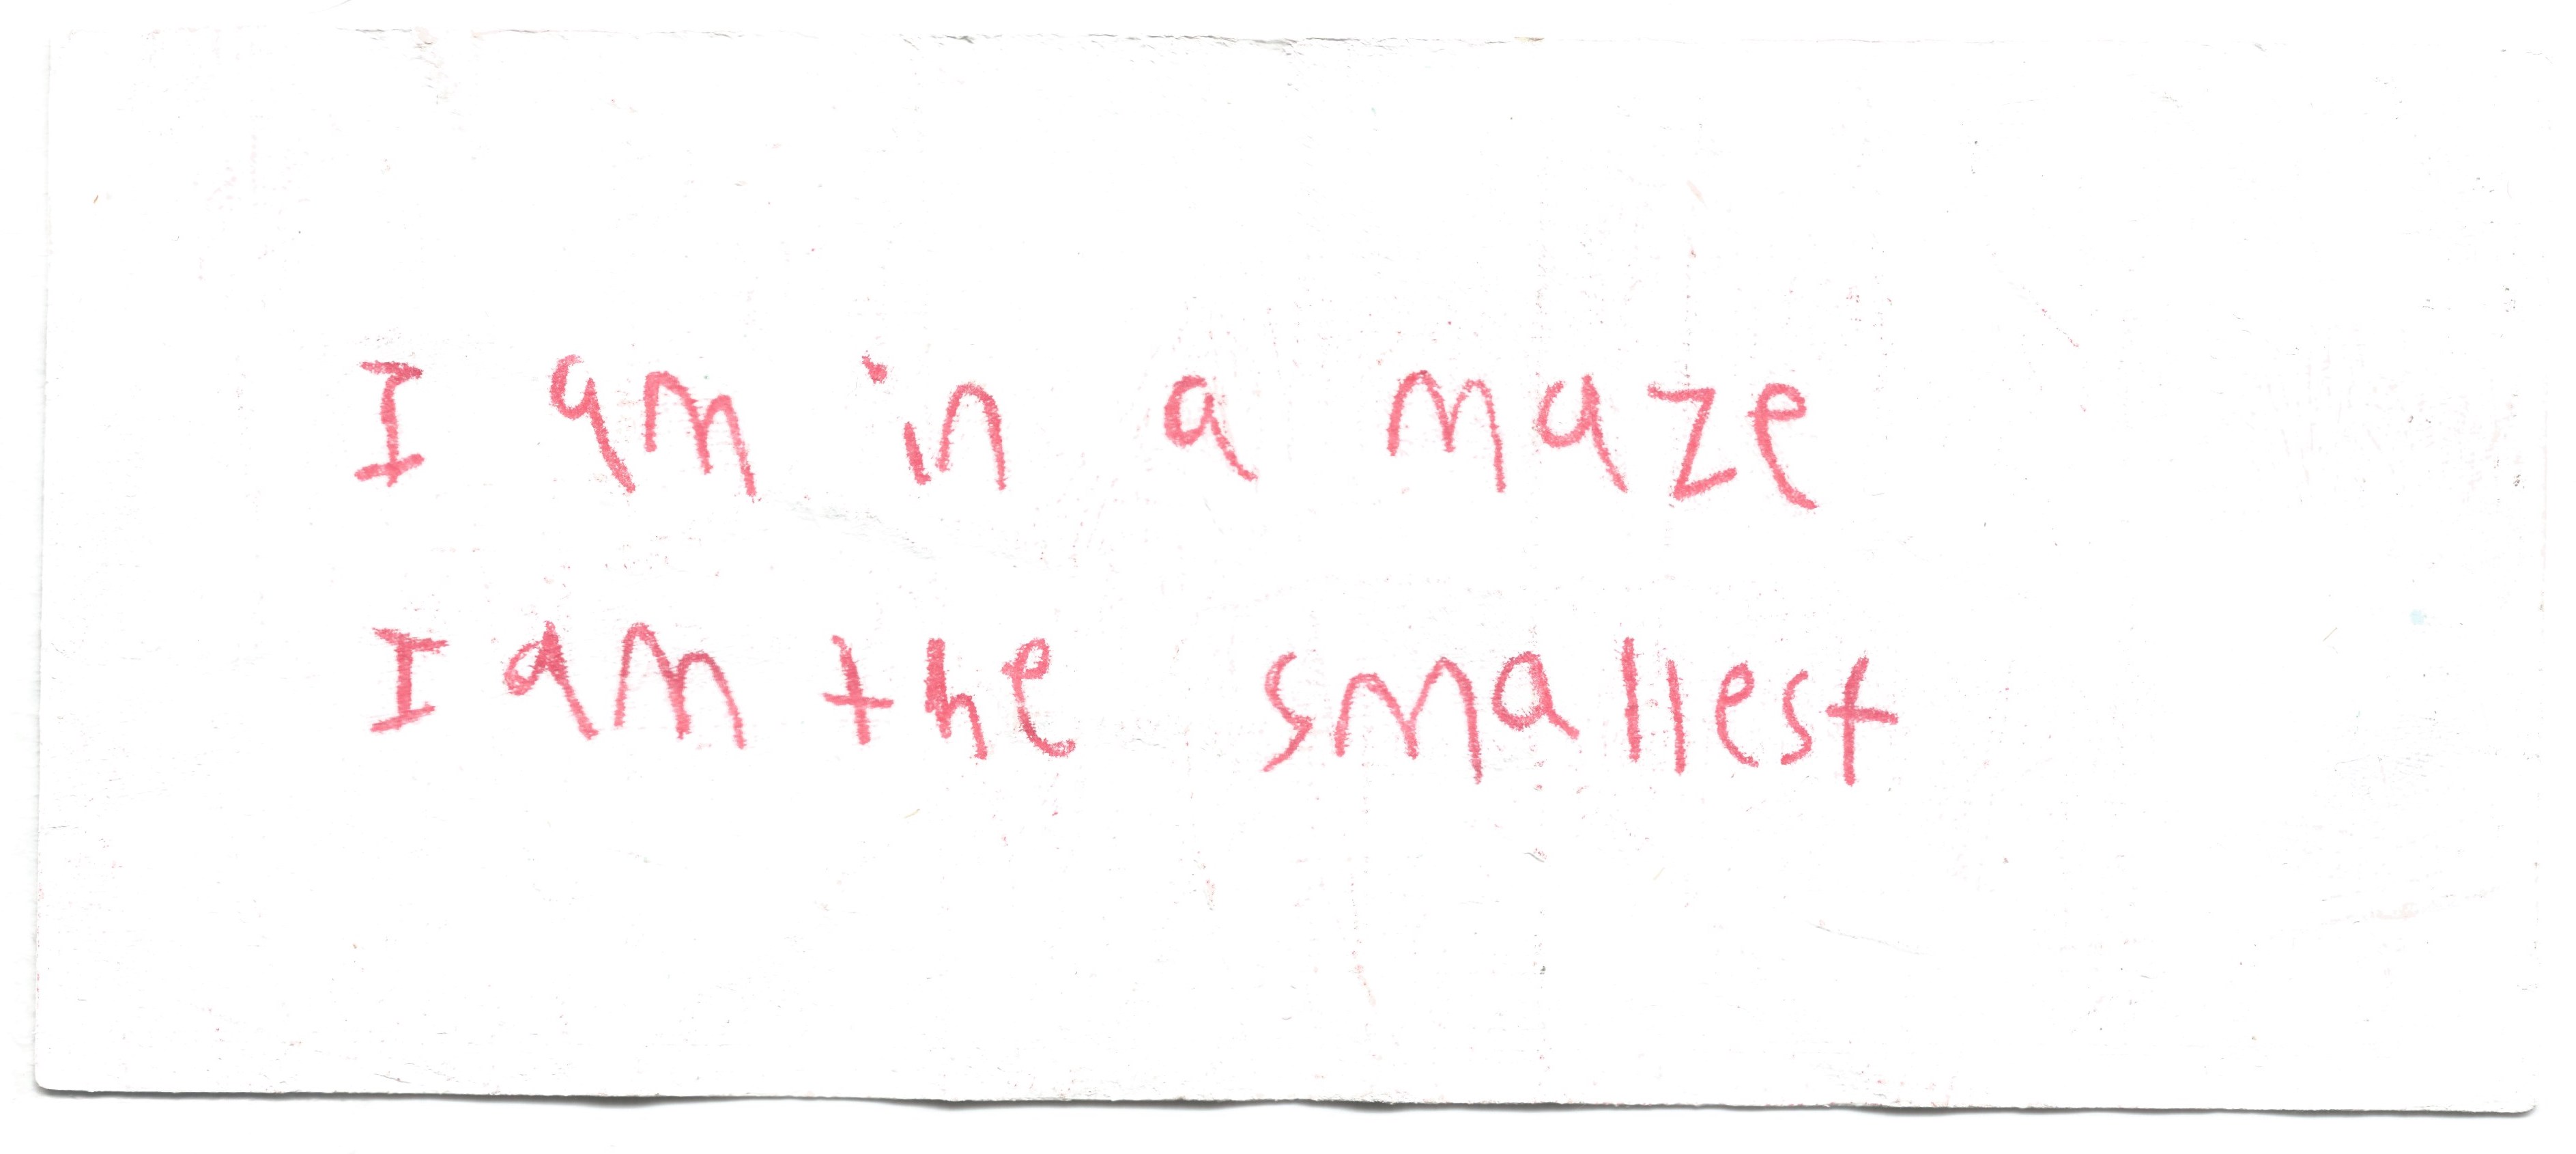 I am in a maze
I am the smallest